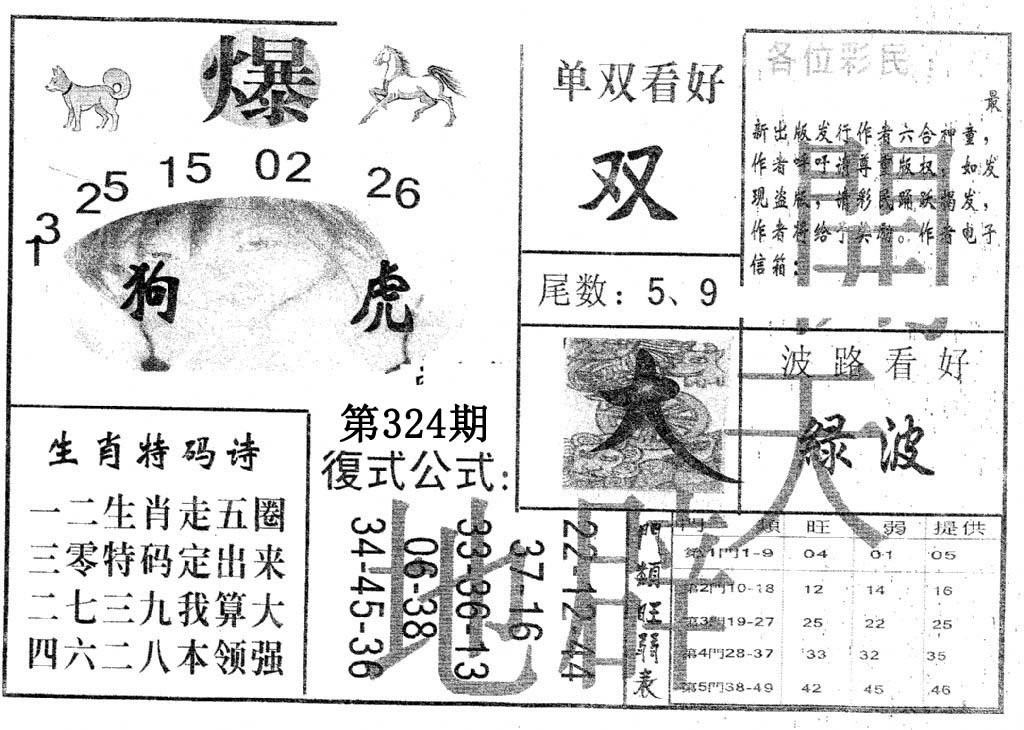 爆
13
25
15
02
26
狗
虎
单双看好
双
各位彩民：
最
新出版发行作者六合神童，
作者呼吁请尊重版权，如发
现盗版，请彩民踊跃揭发，
作者将给予奖励。作者电子
信箱：
尾数：5、9
大
波路看好
緑波
第324期
復式公式：
34-45-36
06-38
33-36-13
37-16
22-12-44
生肖特码诗
一二生肖走五圈
三零特码定出来
二七三九我算大
四六二八本领强
門類旺弱表
門類 旺 弱 提供
第1門1-9 04 01 05
第2門10-18 12 14 16
第3門19-27 25 22 25
第4門28-37 33 32 35
第5門38-49 42 45 46
天
地